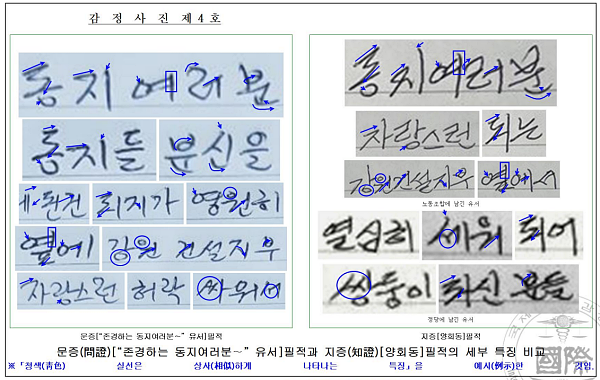 감 정 사 진 제 4 호
동지 여러분
동지들 분신을
된건 되지가 영원히
옆에 강원 건설지부
자랑스런 허락 싸워서
문증["존경하는 동지여러분~" 유서]필적
동지 여러분
자랑스런 되는
강원건설지부 옆에서
노동조합에 남긴 유서
열심히 세워 되어
쌍둥이 하신 분들
정당에 남긴 유서
지증[양회동]필적
문증(問證)["존경하는 동지여러분~" 유서]필적과 지증(知證)[양회동]필적의 세부 특징 비교
※「청색(靑色) 실선은 상사(相似)하게 나타나는 특징」을 예시(例示)한 것임.
國際